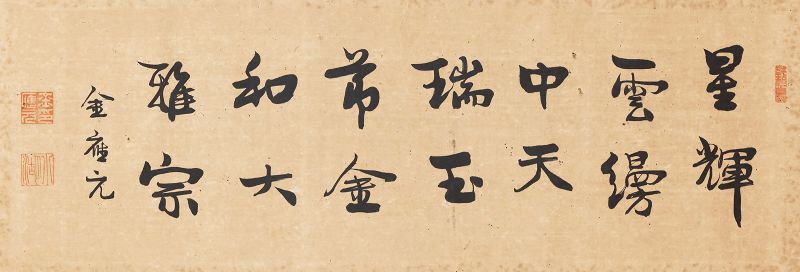 星輝
雲縵
中天
瑞玉
節金
和大
雅宗
金應元